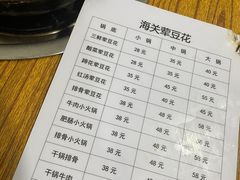 海关荤豆花
锅底 小锅 中锅 大锅
三鲜荤豆花 28元 35元 40元
酸菜荤豆花 28元 35元 40元
蹄花荤豆花 35元 45元 55元
红汤荤豆花 28元 35元 40元
排骨荤豆花 38元 48元 58元
牛肉小火锅 38元 48元 58元
肥肠小火锅 38元 48元 58元
排骨小火锅 38元 48元 58元
干锅排骨 38元 48元
干锅牛肉 38元